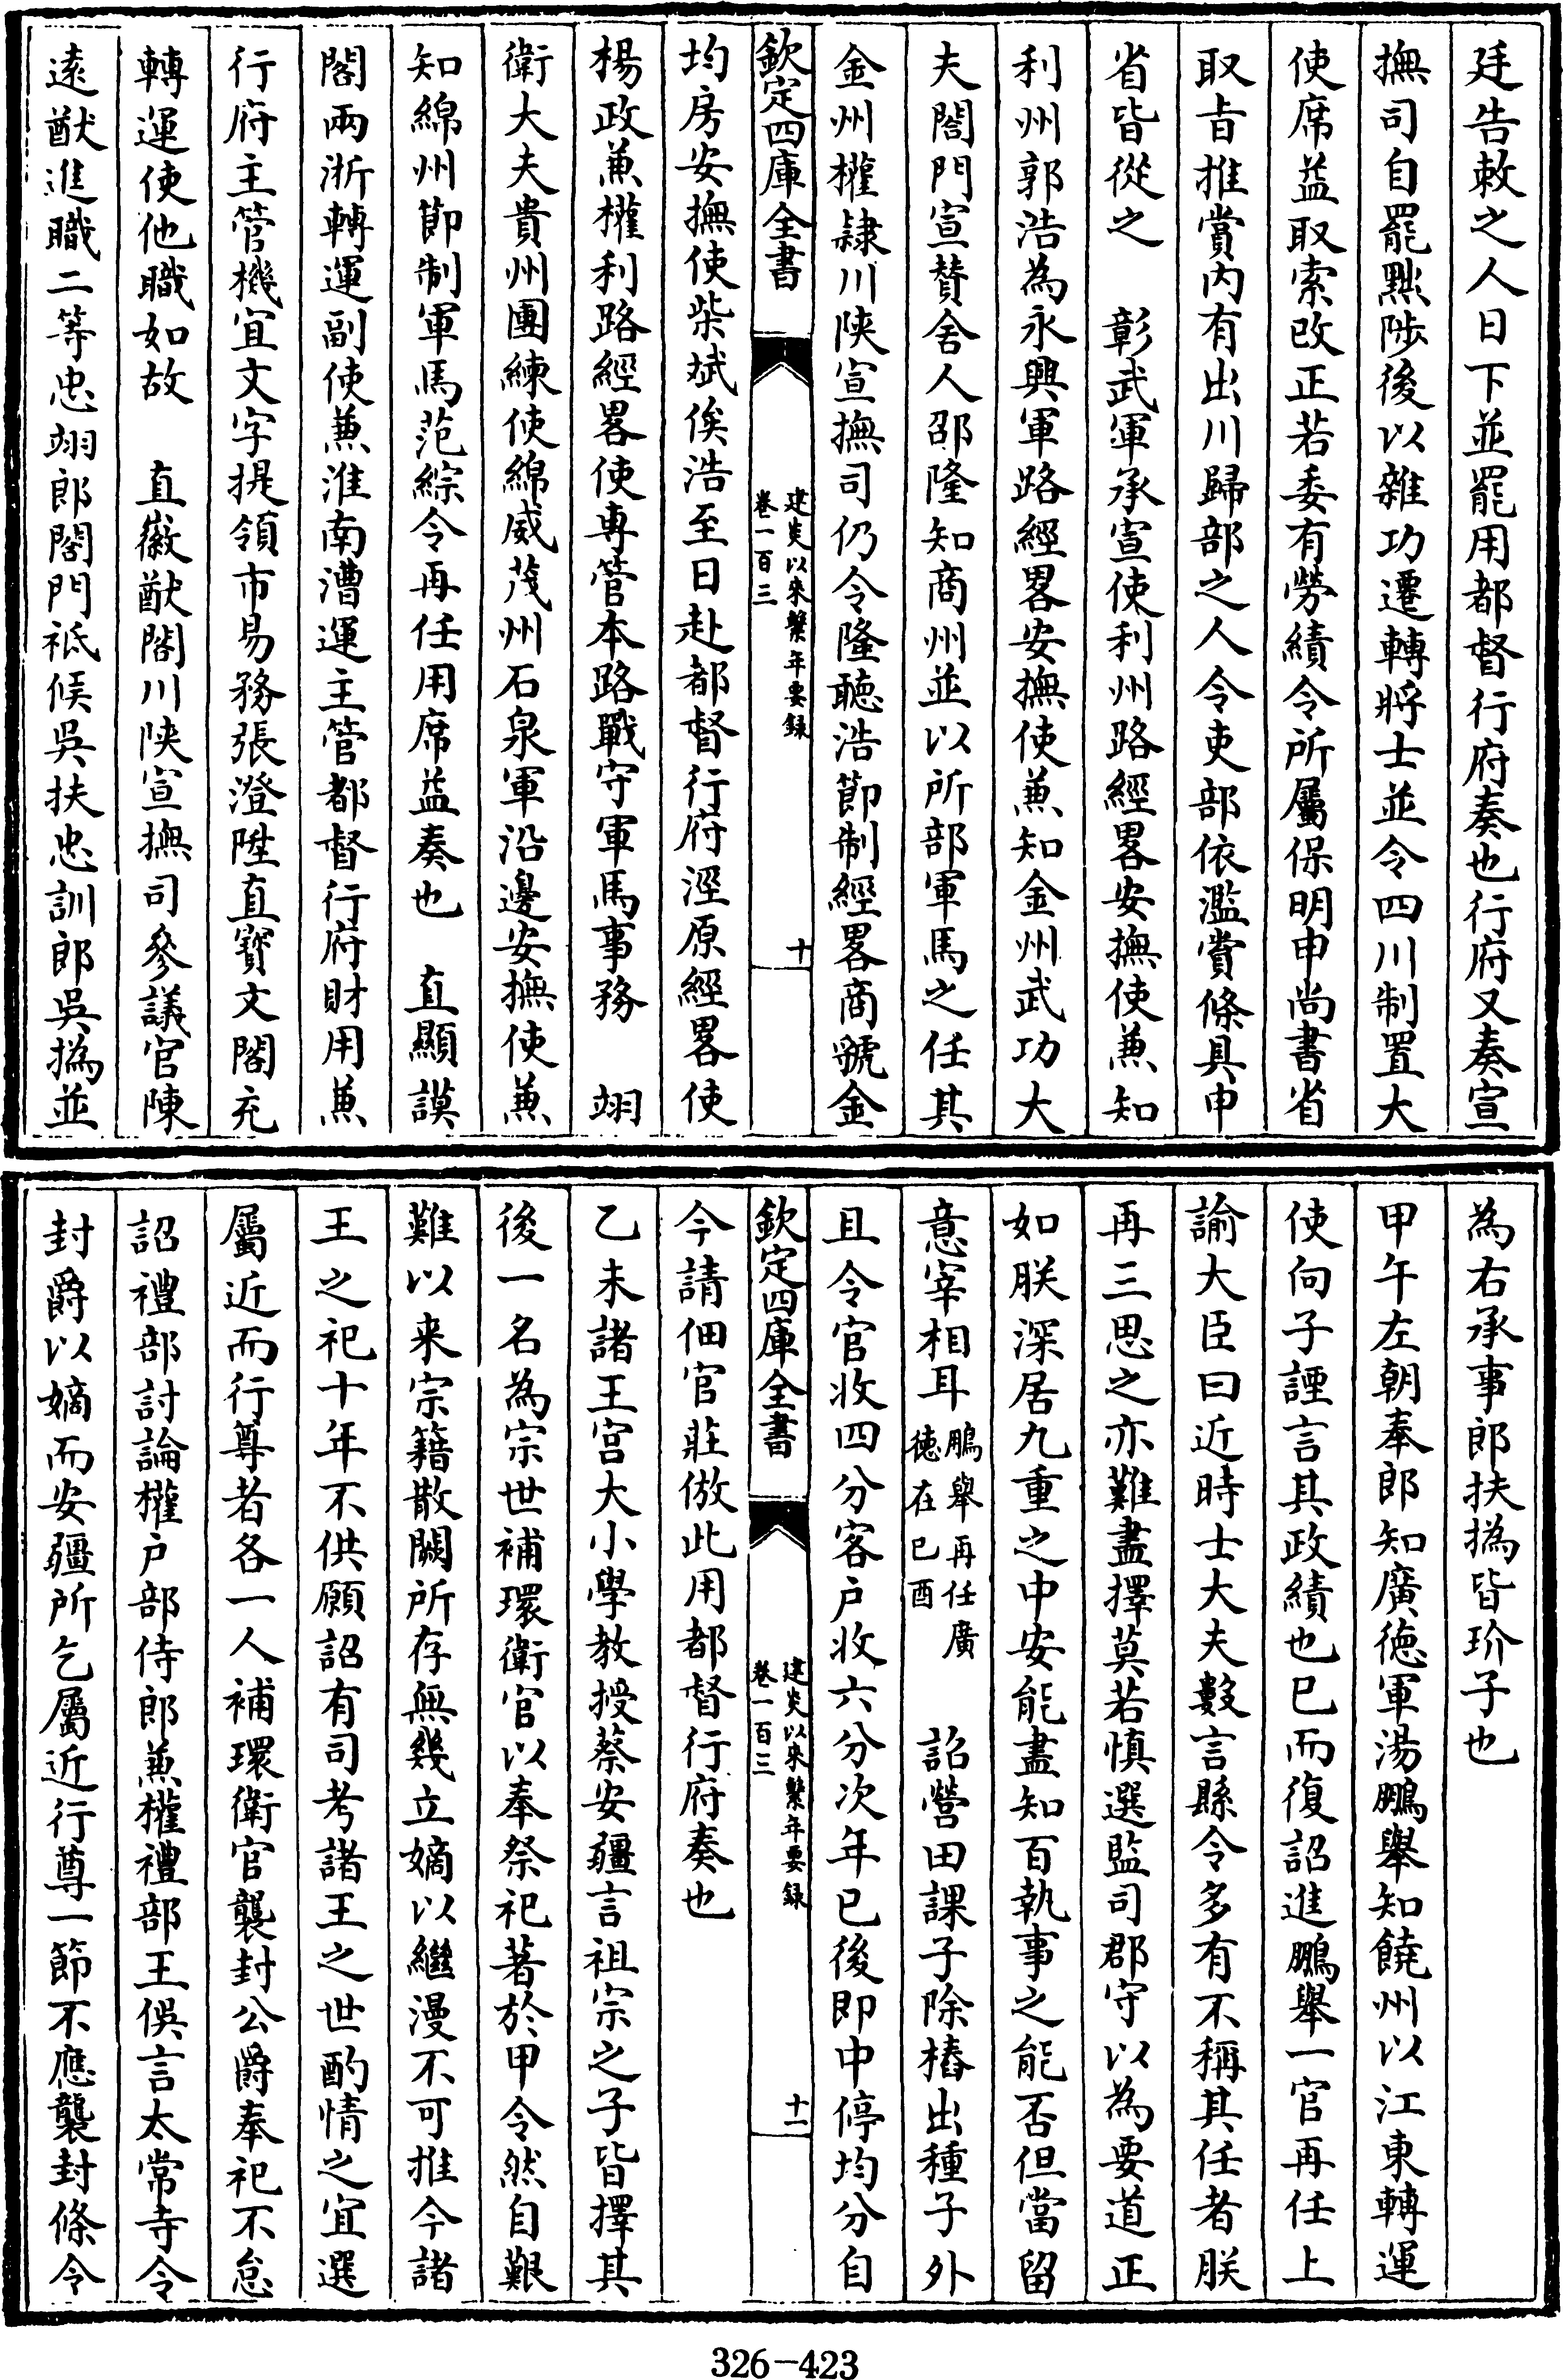 廷告敕之人日下並罷用都督行府奏也行府又奏宣
撫司自罷黜陟後以雜功遷轉將士並令四川制置大
使席益取索改正若委有勞績令所屬保明申尚書省
取㫖推賞内有出川歸部之人令吏部依濫賞條具申
省皆從之　彰武軍承宣使利州路經畧安撫使兼知
利州郭浩為永興軍路經畧安撫使兼知金州武功大
夫閤門宣賛舍人邵隆知商州並以所部軍馬之任其
金州權隷川陝宣撫司仍令隆聽浩節制經畧商虢金
欽定四庫全書
建炎以來繫年要録
卷一百三
十
均房安撫使柴斌俟浩至日赴都督行府涇原經畧使
楊政兼權利路經畧使專管本路戰守軍馬事務　翊
衛大夫貴州團練使綿威茂州石泉軍沿邊安撫使兼
知綿州節制軍馬范綜令再任用席益奏也　直顯謨
閣兩浙轉運副使兼淮南漕運主管都督行府財用兼
行府主管機宜文字提領市易務張澄陞直寳文閣充
轉運使他職如故　直徽猷閣川陝宣撫司參議官陳
逺猷進職二等忠翊郎閤門祗候吳扶忠訓郎吳撝並
為右承事郎扶撝皆玠子也
甲午左朝奉郎知廣徳軍湯鵬舉知饒州以江東轉運
使向子諲言其政績也已而復詔進鵬舉一官再任上
諭大臣曰近時士大夫數言縣令多有不稱其任者朕
再三思之亦難盡擇莫若慎選監司郡守以為要道正
如朕深居九重之中安能盡知百執事之能否但當留
意宰相耳鵬舉再任廣徳在已酉　詔營田課子除樁出種子外
且令官收四分客户收六分次年已後即中停均分自
欽定四庫全書
建炎以來繫年要録
卷一百三
十一
今請佃官莊倣此用都督行府奏也
乙未諸王宫大小學教授蔡安疆言祖宗之子皆擇其
後一名為宗世補環衛官以奉祭祀著於甲令然自艱
難以来宗籍散闕所存無幾立嫡以繼漫不可推今諸
王之祀十年不供願詔有司考諸王之世酌情之宜選
屬近而行尊者各一人補環衛官襲封公爵奉祀不怠
詔禮部討論權户部侍郎兼權禮部王俁言太常寺令
封爵以嫡而安疆所乞屬近行尊一節不應襲封條令
326-423